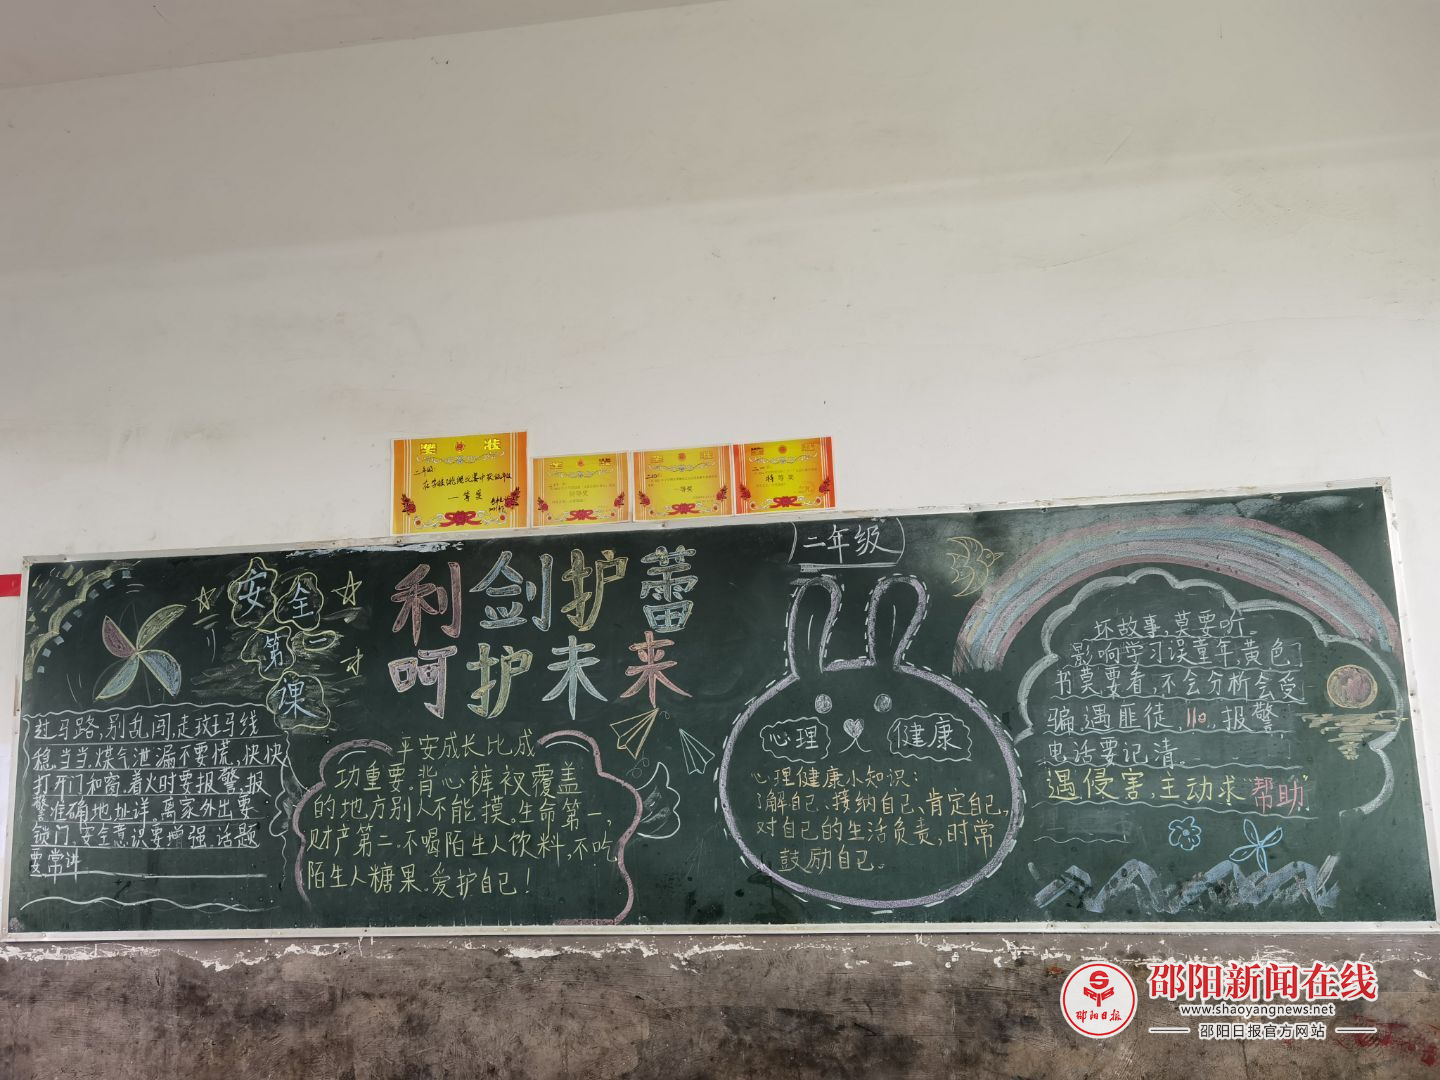 奖状
二年级:
一等奖
特等奖
一等奖
特等奖
二年级
安全
第一
课
利剑护蕾
呵护未来
过马路,别乱闯,走斑马线
稳当当.煤气泄漏不要慌,快快
打开门和窗.着火时要报警,报
警准确地址详。离家外出要
锁门,安全意识要增强,话题
要常讲
平安成长比成
功重要.背心裤衩覆盖
的地方别人不能摸。生命第一,
财产第二.不喝陌生人饮料,不吃
陌生人糖果。爱护自己!
心理 健康
心理健康小知识:
了解自己、接纳自己、肯定自己,
对自己的生活负责,时常
鼓励自己。
坏故事,莫要听。
影响学习误童年,黄色
书莫要看,不会分析会受
骗.遇匪徒,110,报警,
忠话要记清。
遇侵害,主动求"帮助"
邵阳日报
邵阳新闻在线
www.shaoyangnews.net
邵阳日报官方网站